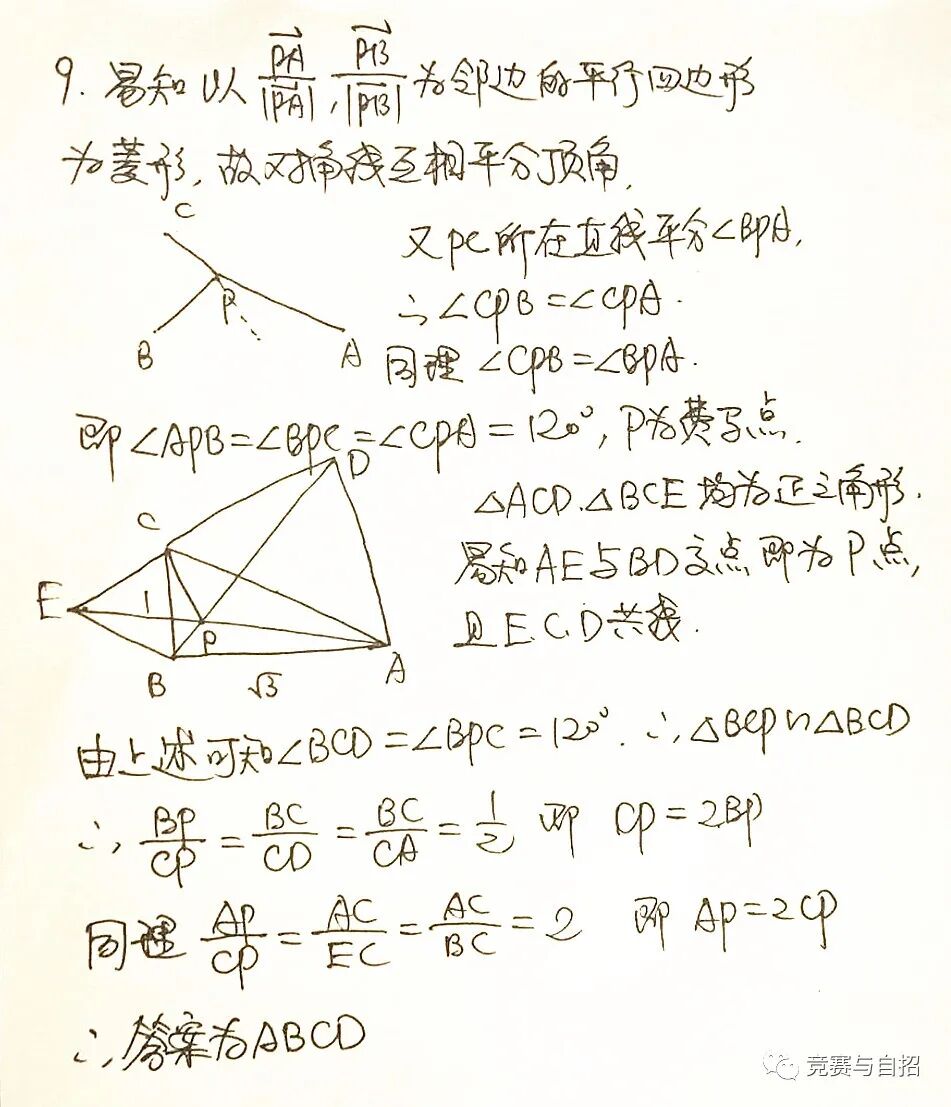 9. 易知以 $\frac{\overrightarrow{PA}}{|\overrightarrow{PA}|}$, $\frac{\overrightarrow{PB}}{|\overrightarrow{PB}|}$ 为邻边的平行四边形
为菱形, 故对角线互相平分顶角,
C
P
B
A
又PC所在直线平分∠BPA,
∴∠CPB=∠CPA.
同理 ∠CPB=∠BPA.
即∠APB=∠BPC=∠CPA=120°, P为费马点.
D
C
E
1
P
B
√3
A
△ACD.△BCE均为正三角形.
易知AE与BD交点即为P点,
且E.C.D共线.
由上述可知∠BCD=∠BPC=120°. ∴△BCP∽△BCD
∴ $\frac{BP}{CP}=\frac{BC}{CD}=\frac{BC}{CA}=\frac{1}{2}$ 即 CP=2BP
同理 $\frac{AP}{CP}=\frac{AC}{EC}=\frac{AC}{BC}=2$ 即 AP=2CP
∴答案为ABCD
竞赛与自招